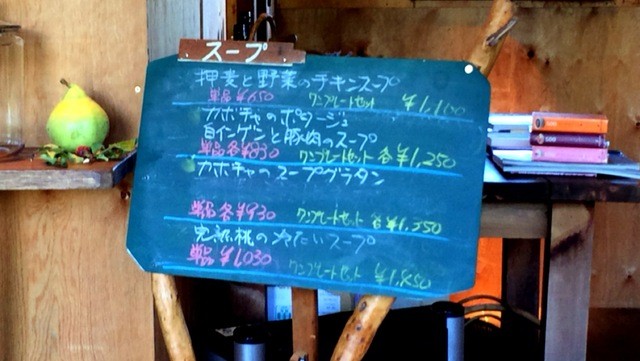 スープ
押麦と野菜のチキンスープ
単品 ¥650 ワンプレートセット ¥1,100
カボチャのポタージュ
白インゲンと豚肉のスープ
単品各¥830 ワンプレートセット 各¥1,250
カボチャのスープグラタン
単品各¥930 ワンプレートセット 各¥1,350
完熟桃の冷たいスープ
単品¥1,030 ワンプレートセット ¥1,450